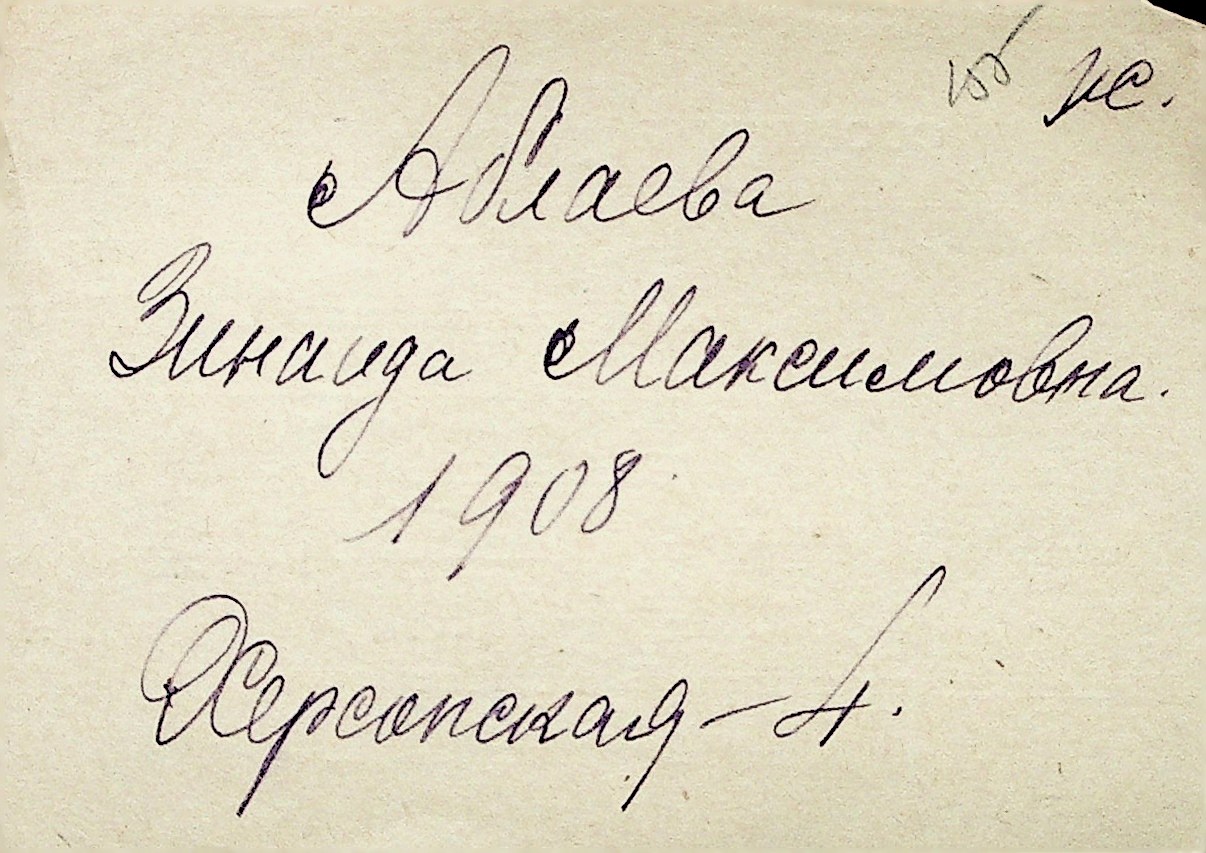 Аблаева
Зинаида Максимовна.
1908
Херсонская – 4.